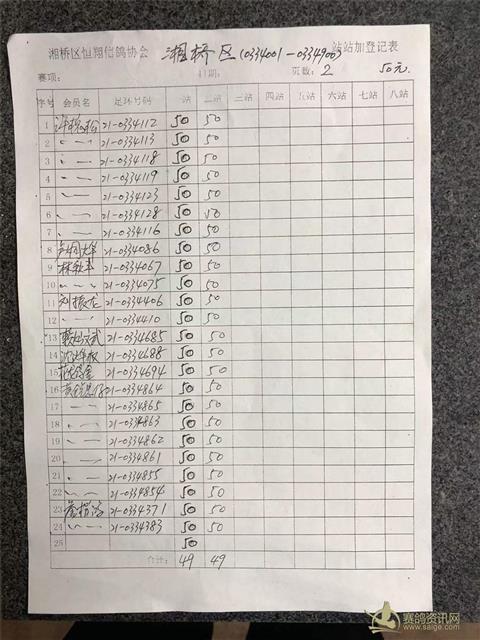 湘桥区恒翔信鸽协会 湘桥区(0334001-0334900) 站站加登记表
赛项: 日期: 页数: 2 50元
序号 会员名 足环号码 一站 二站 三站 四站 五站 六站 七站 八站
1 21-0334112 50 50
2 〃 21-0334113 50 50
3 〃 21-0334118 50 50
4 〃 21-0334119 50 50
5 〃 21-0334123 50 50
6 〃 21-0334128 50 50
7 〃 21-0334116 50 50
8 21-0334086 50 50
9 林秋丰 21-0334067 50 50
10 〃 21-0334075 50 50
11 刘振龙 21-0334406 50 50
12 〃 21-0334410 50 50
13 21-0334685 50 50
14 21-0334688 50 50
15 21-0334694 50 50
16 21-0334864 50 50
17 〃 21-0334865 50 50
18 〃 21-0334863 50 50
19 〃 21-0334862 50 50
20 〃 21-0334861 50 50
21 〃 21-0334855 50 50
22 〃 21-0334854 50 50
23 21-0334371 50 50
24 〃 21-0334383 50 50
25 50
合计: 49 49
赛鸽资讯网
www.saige.com